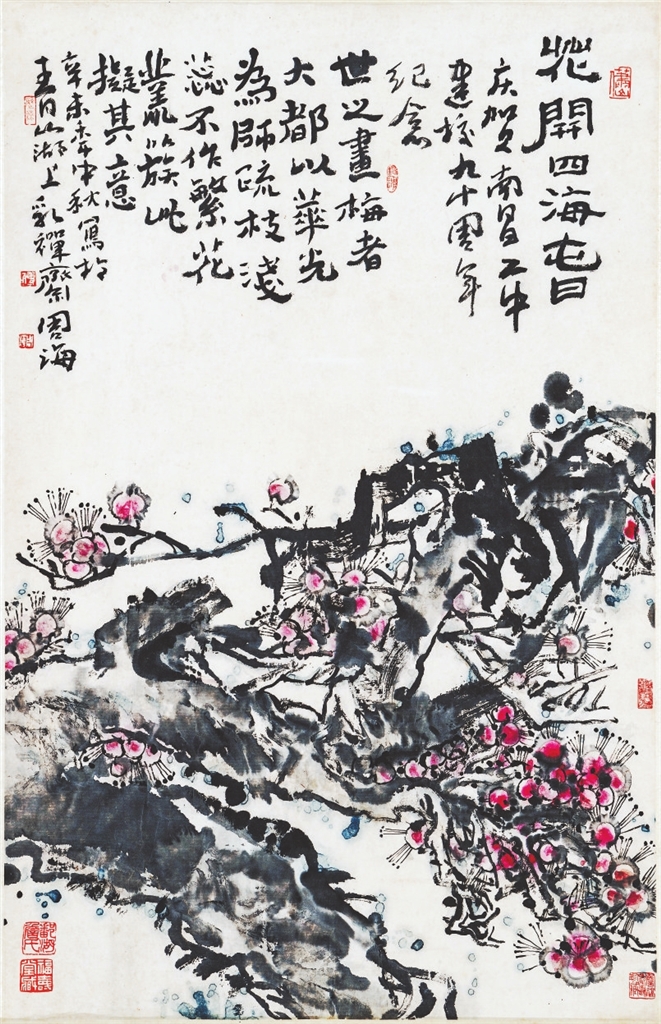 花開四海旾
庆贺南昌二中
建校九十周年
纪念
世之畫梅者
大都以華光
為師疏枝淺
蕊不作繁花
簇此
擬其意
辛未年中秋寫於
青山湖上乳禪齋周海